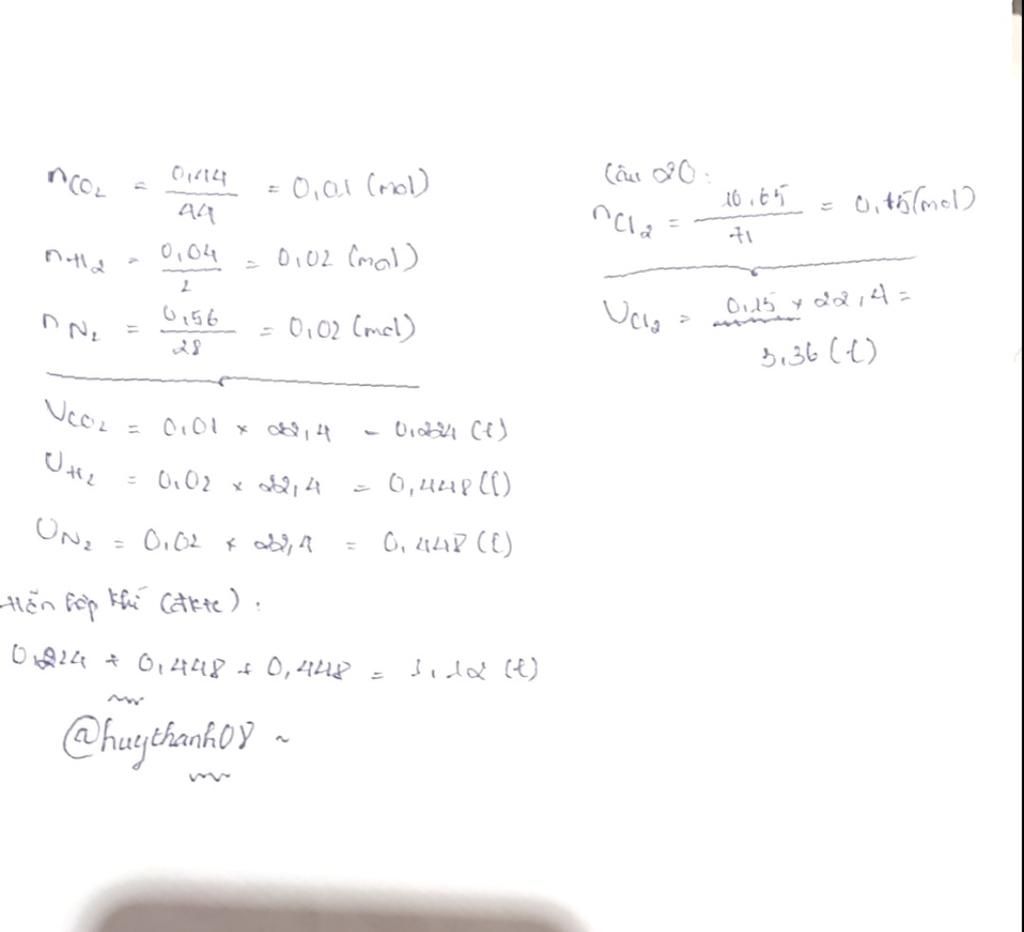 nCO₂ = 0,44/44 = 0,01 (mol)
nH₂ = 0,04/2 = 0,02 (mol)
nN₂ = 0,56/28 = 0,02 (mol)
VCO₂ = 0,01 × 22,4 = 0,224 (l)
VH₂ = 0,02 × 22,4 = 0,448 (l)
VN₂ = 0,02 × 22,4 = 0,448 (l)
Hỗn hợp khí (đktc) :
0,224 + 0,448 + 0,448 = 1,12 (l)
@huythanh08 ~
Câu 20:
nCl₂ = 10,65/71 = 0,15 (mol)
VCl₂ = 0,15 × 22,4 =
3,36 (l)